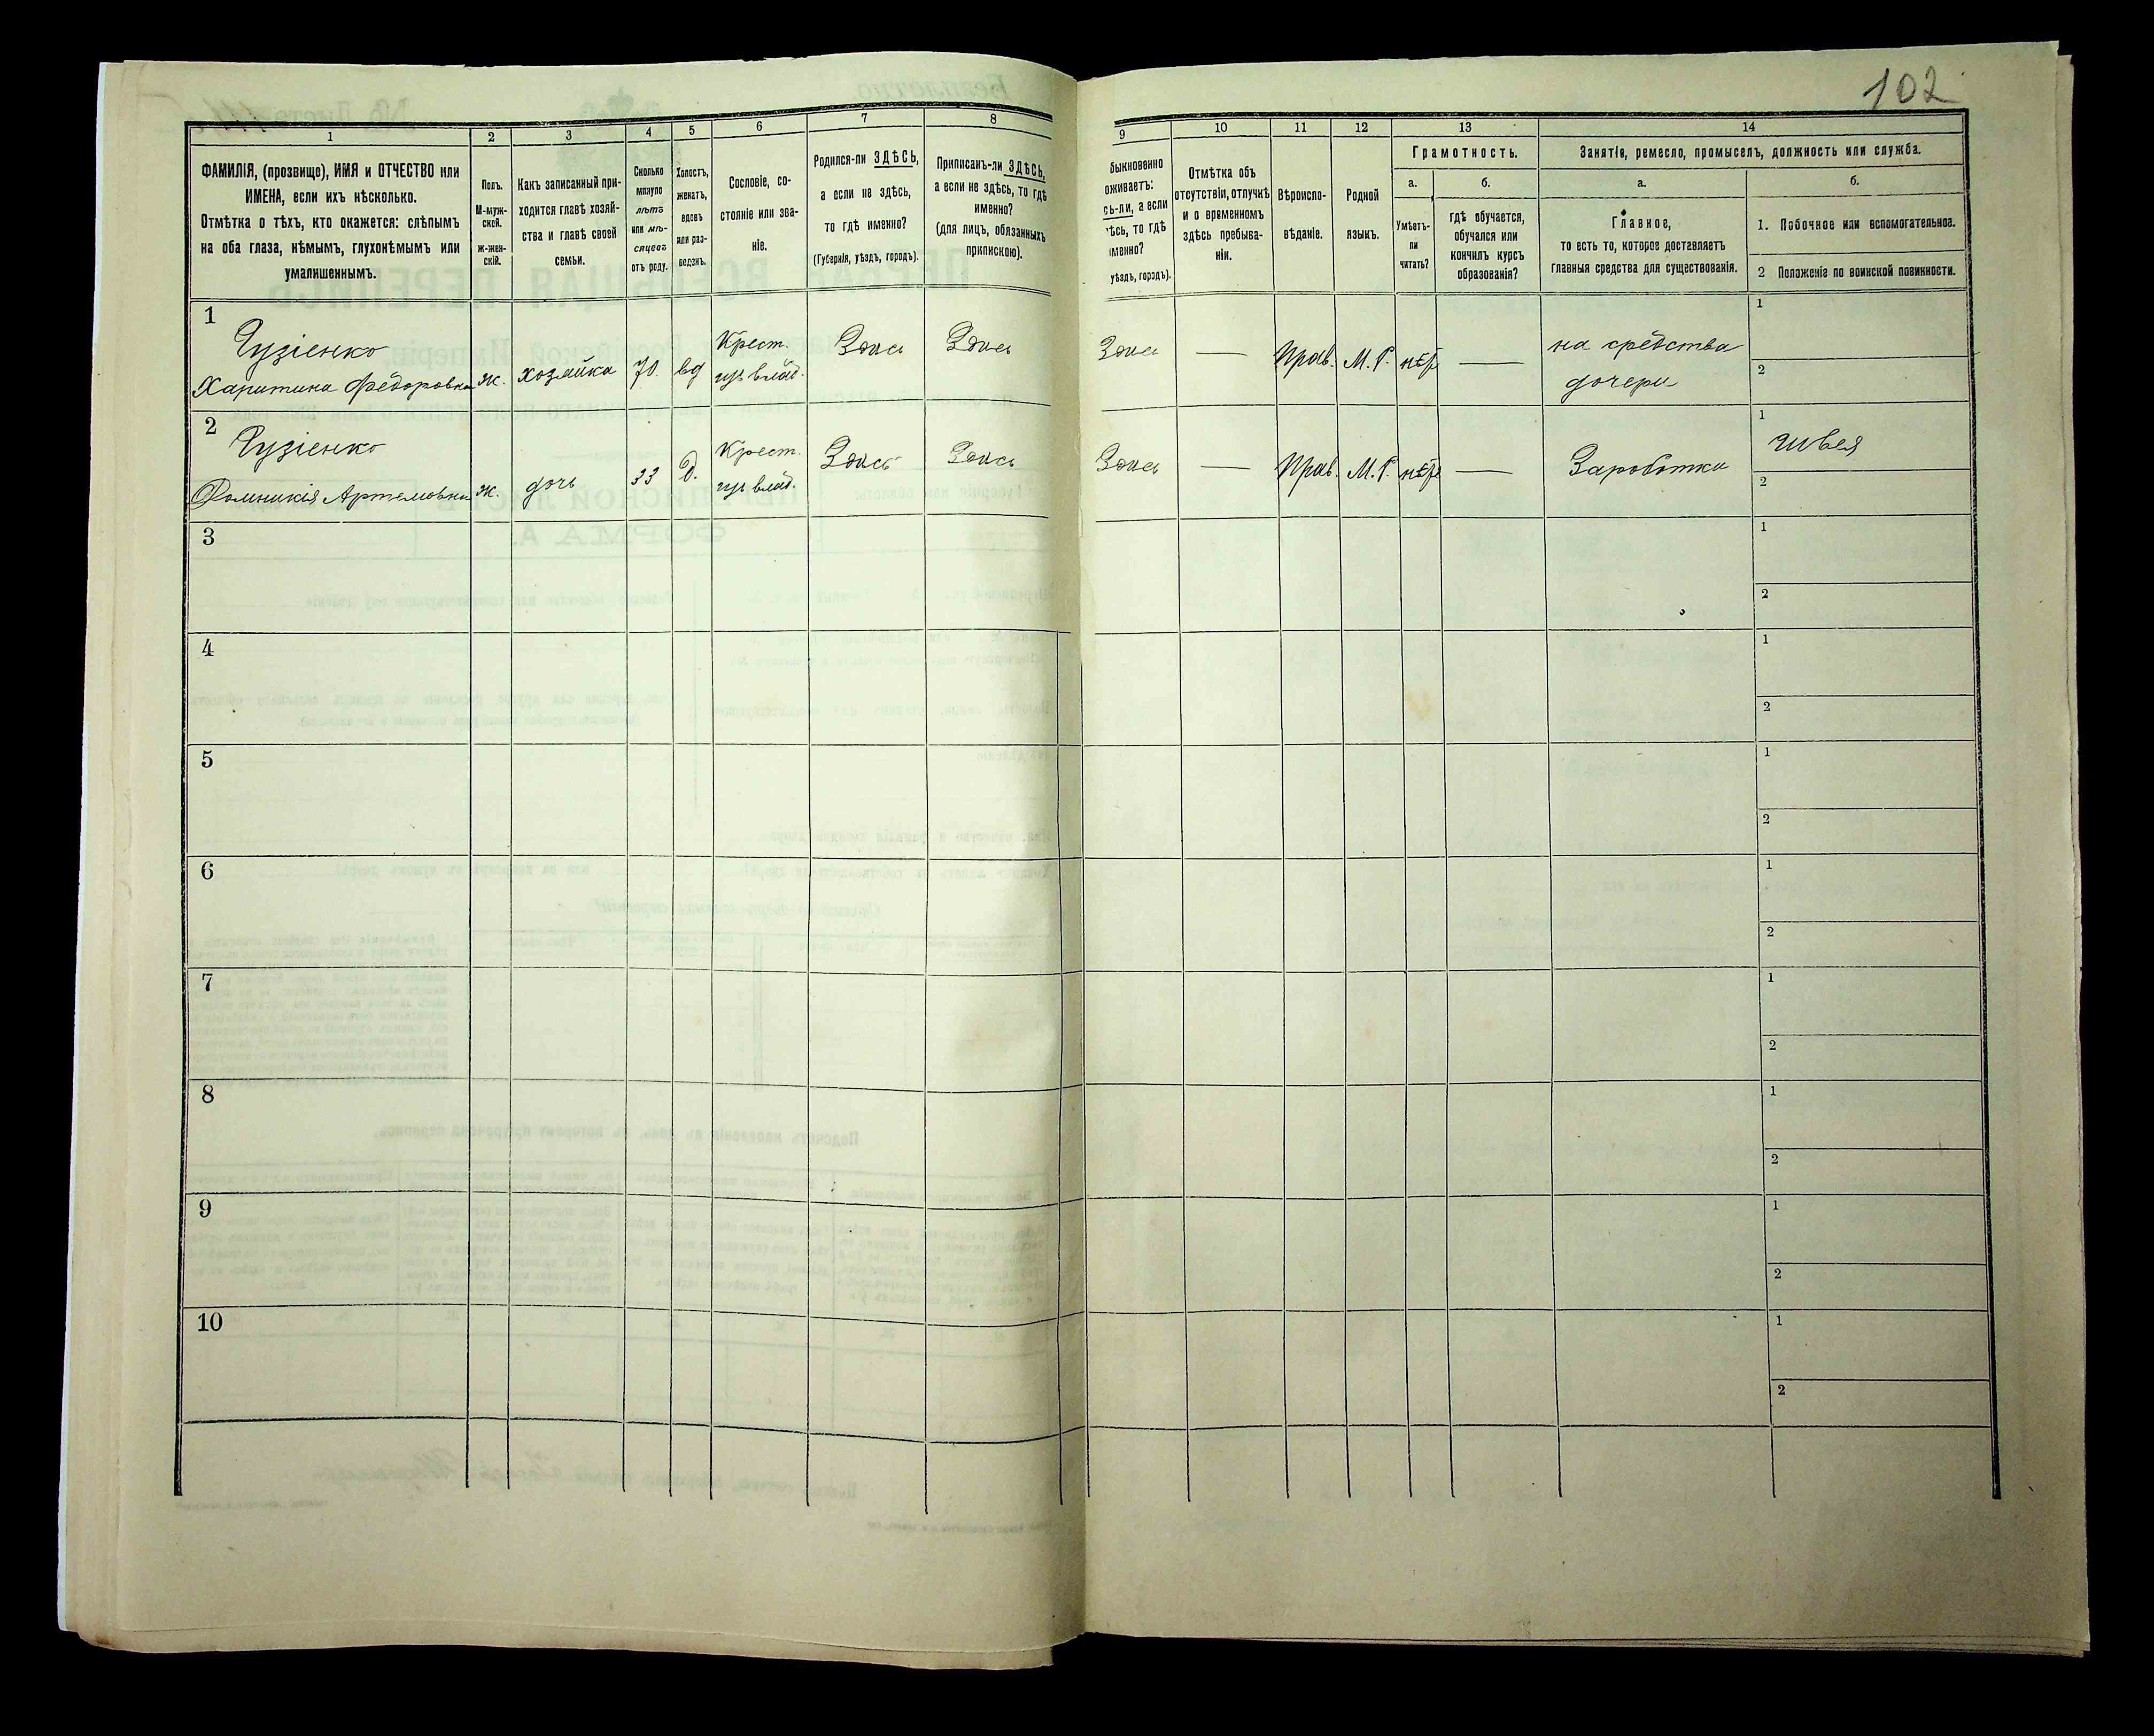 102
1
2
3
4
5
6
7
8
9
10
11
12
13
14
ФАМИЛІЯ, (прозвище), ИМЯ и ОТЧЕСТВО или
ИМЕНА, если ихъ нѣсколько.
Отмѣтка о тѣхъ, кто окажется: слѣпымъ
на оба глаза, нѣмымъ, глухонѣмымъ или
умалишеннымъ.
Полъ.
М-муж-
ской.
ж-жен-
скій.
Какъ записанный при-
ходится главѣ хозяй-
ства и главѣ своей
семьи.
Сколько
минуло
лѣтъ
или мѣ-
сяцевъ
отъ роду.
Холостъ,
женатъ,
вдовъ
или раз-
веденъ.
Сословіе, со-
стояніе или зва-
ніе.
Родился-ли ЗДѢСЬ,
а если не здѣсь,
то гдѣ именно?
(Губернія, уѣздъ, городъ).
Приписанъ-ли ЗДѢСЬ,
а если не здѣсь, то гдѣ
именно?
(для лицъ, обязанныхъ
припискою).
быкновенно
оживаетъ:
сь-ли, а если
ѣсь, то гдѣ
именно?
уѣздъ, городъ).
Отмѣтка объ
отсутствіи, отлучкѣ
и о временномъ
здѣсь пребыва-
ніи.
Вѣроиспо-
вѣданіе.
Родной
языкъ.
Грамотность.
а.
б.
Умѣетъ-
ли
читать?
гдѣ обучается,
обучался или
кончилъ курсъ
образованія?
Занятіе, ремесло, промыселъ, должность или служба.
а.
б.
Главное,
то есть то, которое доставляетъ
главныя средства для существованія.
1. Побочное или вспомогательное.
2 Положеніе по воинской повинности.
1
Гузіенко
Харитина Федоровна
ж.
хозяйка
70.
вд
Крест.
влад.
Здѣсь
Здѣсь
Здѣсь
—
Прав.
М.Р.
нѣтъ
—
на средства
дочери
1
2
2
Гузіенко
Домникія Артемовна
ж.
дочь
33
д.
Крест.
влад.
Здѣсь
Здѣсь
Здѣсь
—
Прав.
М.Р.
нѣтъ
—
Заработки
1
швея
2
3
1
2
4
1
2
5
1
2
6
1
2
7
1
2
8
1
2
9
1
2
10
1
2